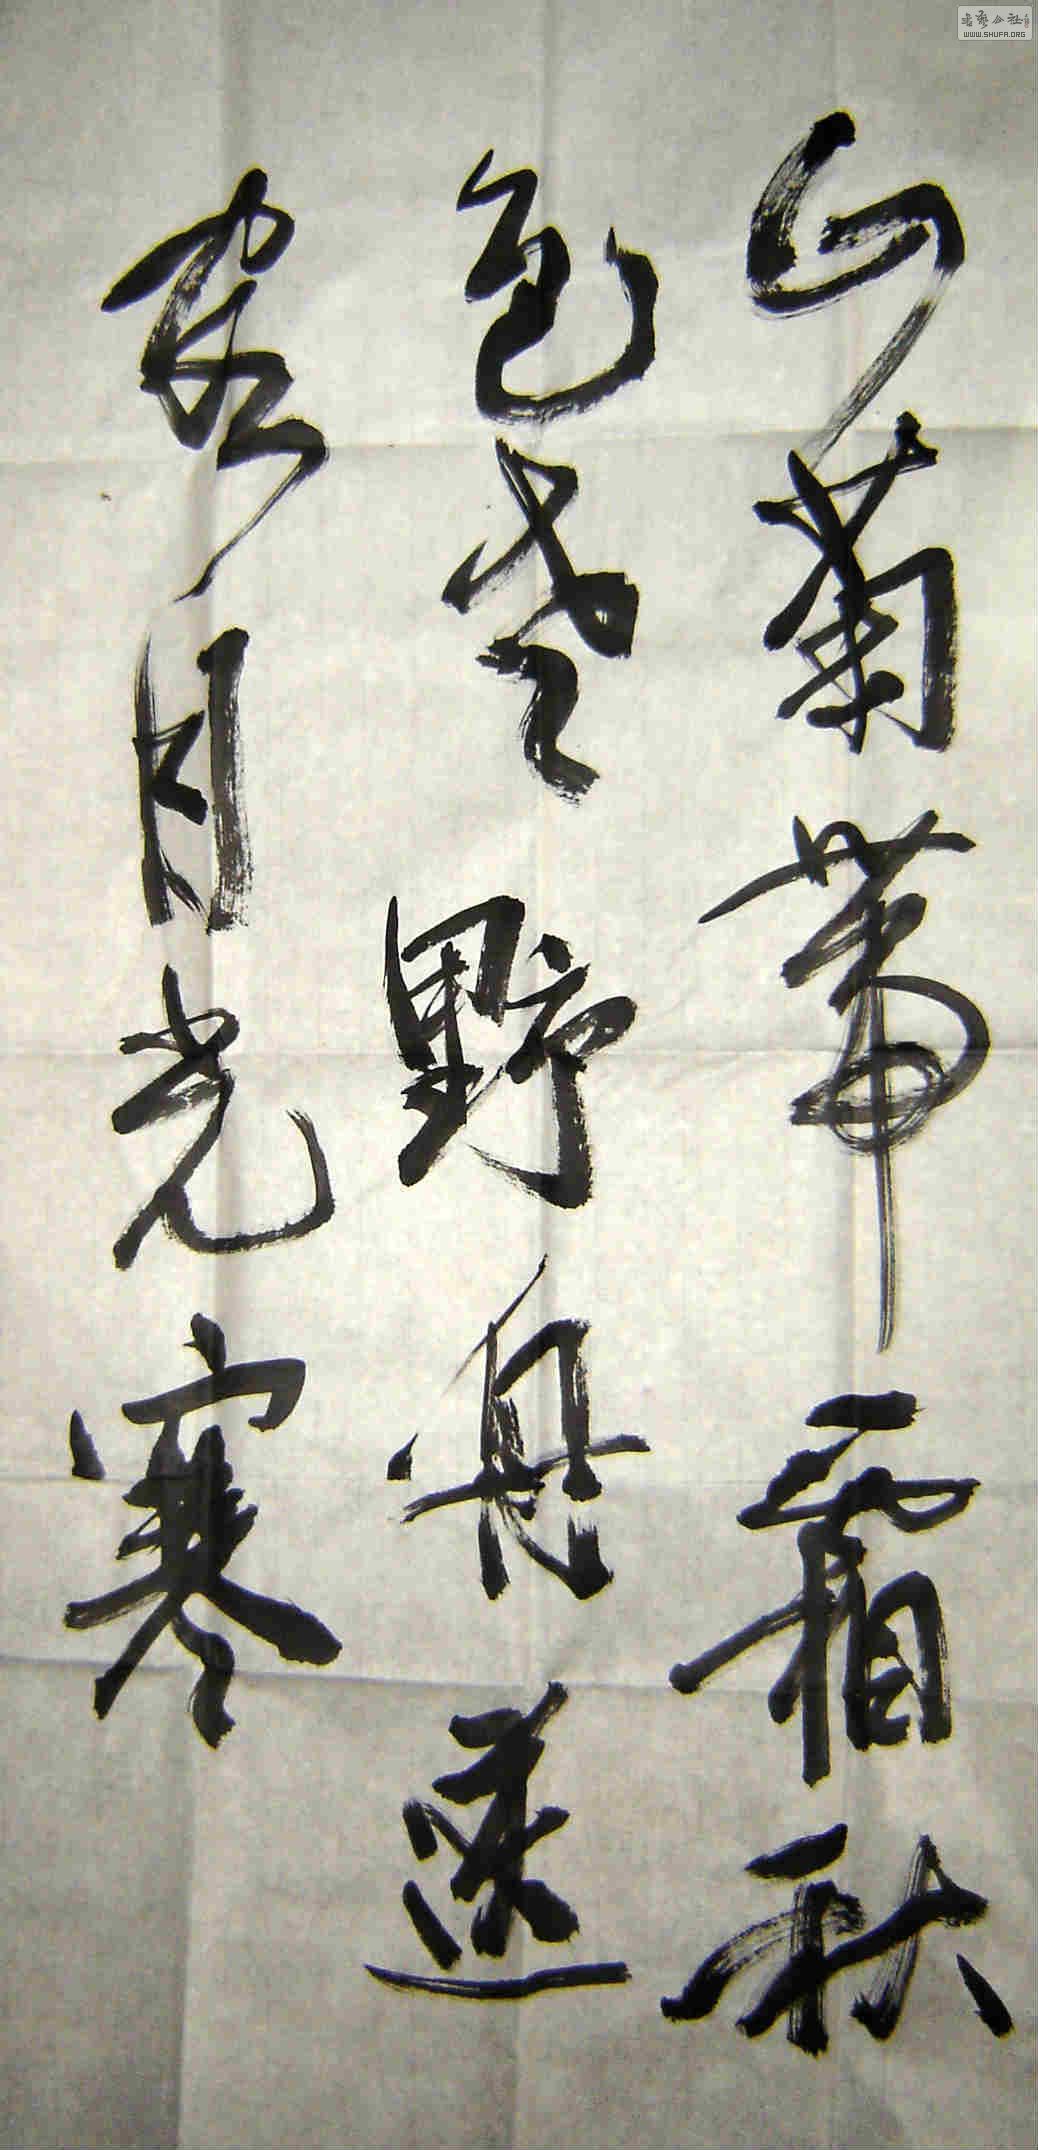 山菊带霜秋
色老野舟送
客月光寒
书艺公社
WWW.SHUFA.ORG